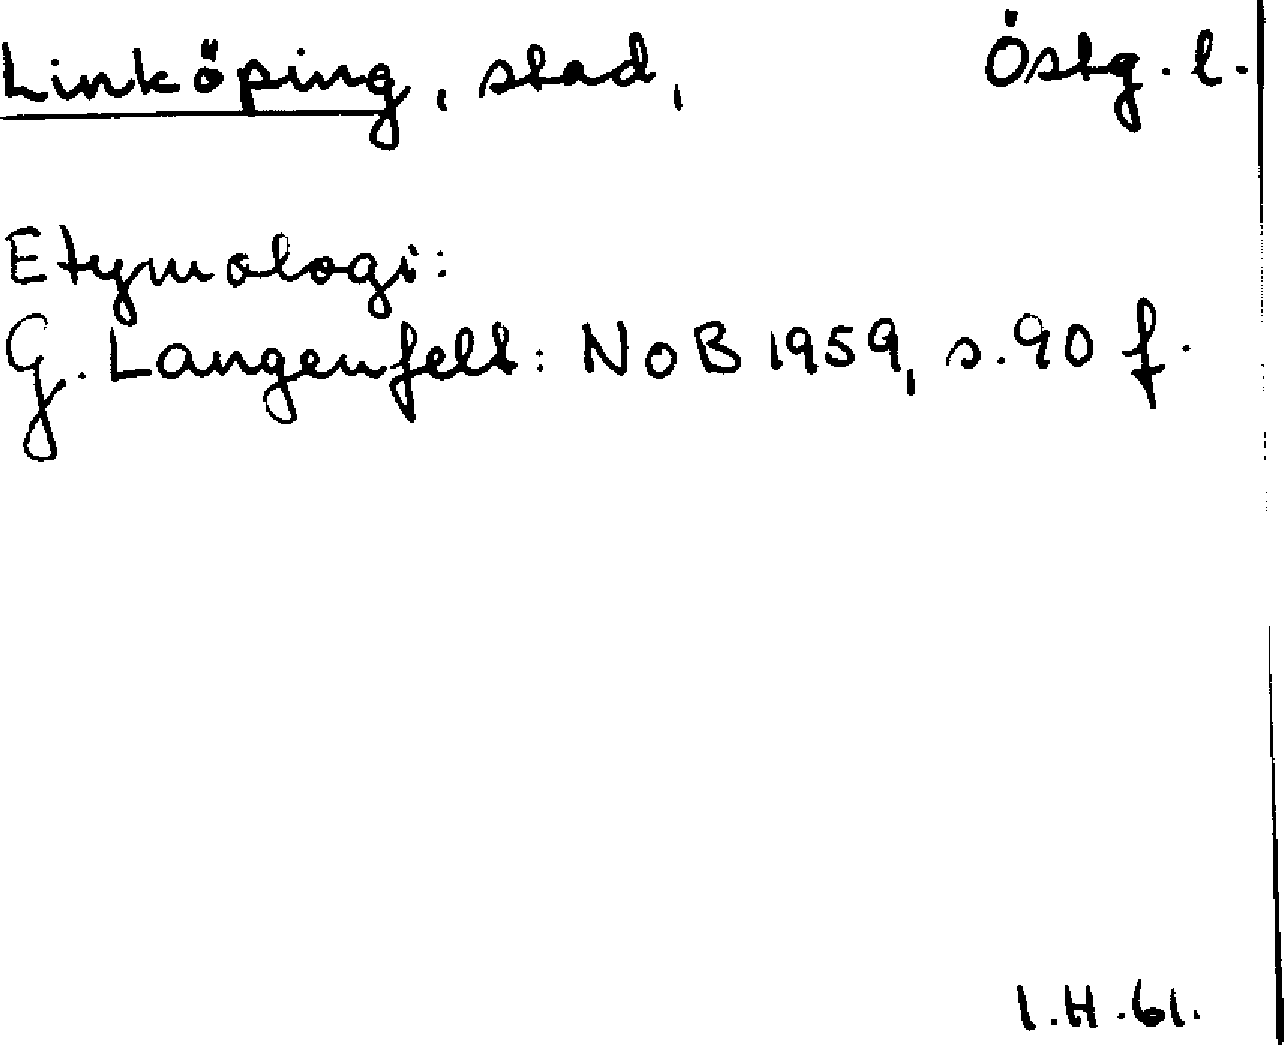 Linköping, stad, Östg. l.
Etymologi:
G. Langenfelt: NoB 1959, s. 90 f.
I.H. 61.